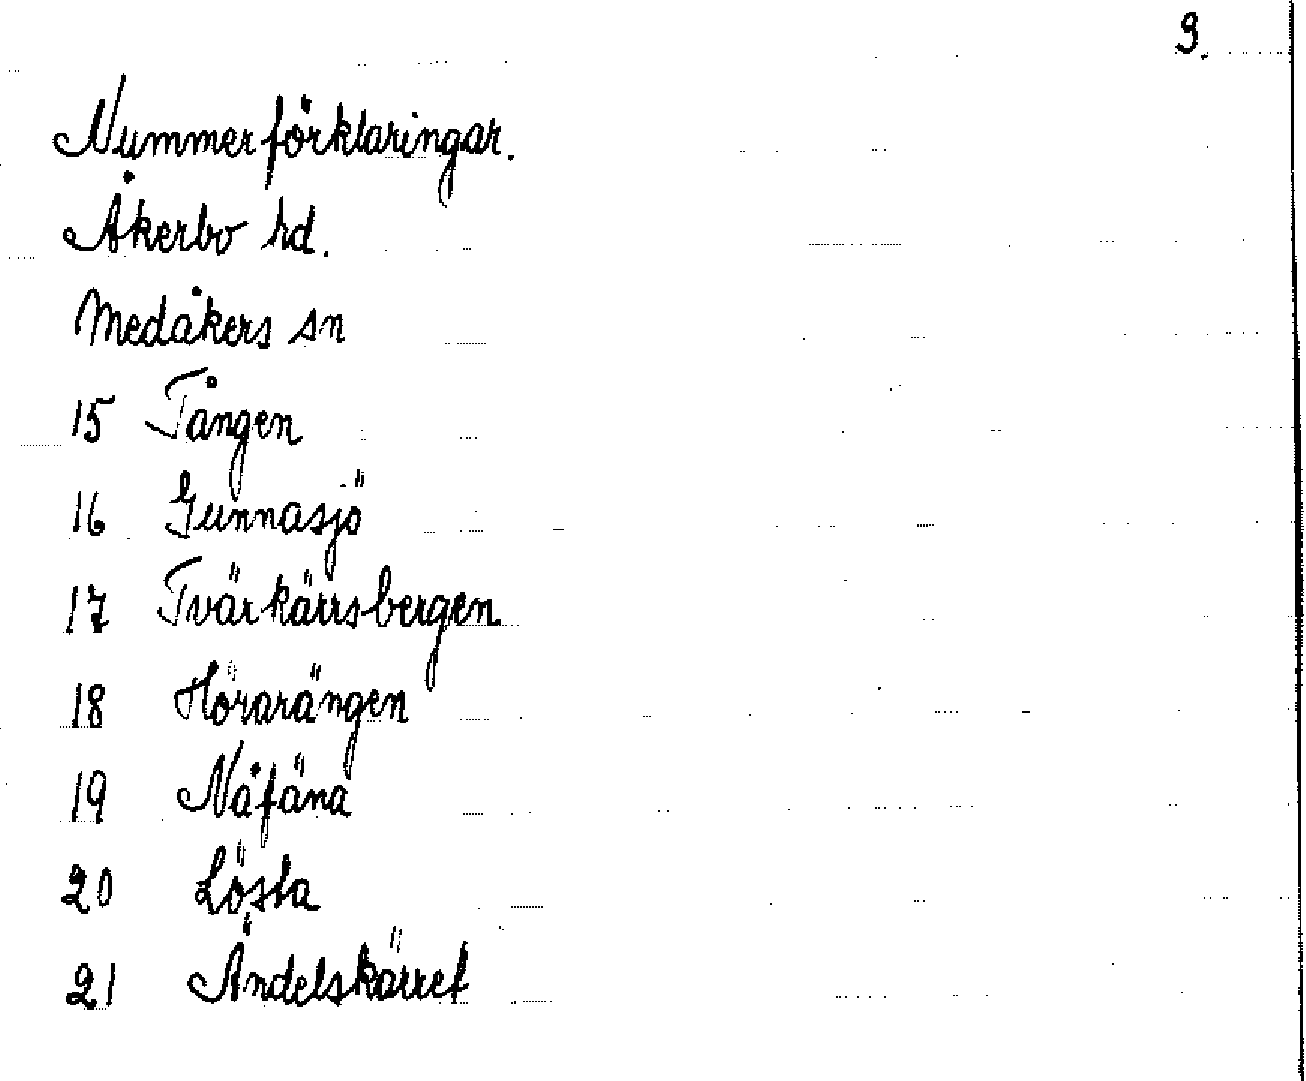 9.
Nummerförklaringar.
Åkerbo hd.
Medåkers sn
15 Tången
16 Gunnasjö
17 Tvärkärrsbergen
18 Hörarängen
19 Nåfäna
20 Lösta
21 Ändelskärret